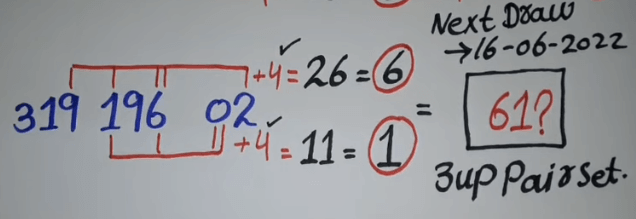 Next Draw
→16-06-2022
+4 = 26 = 6
319 196 02 = 61?
+4 = 11 = 1
3up Pair Set.